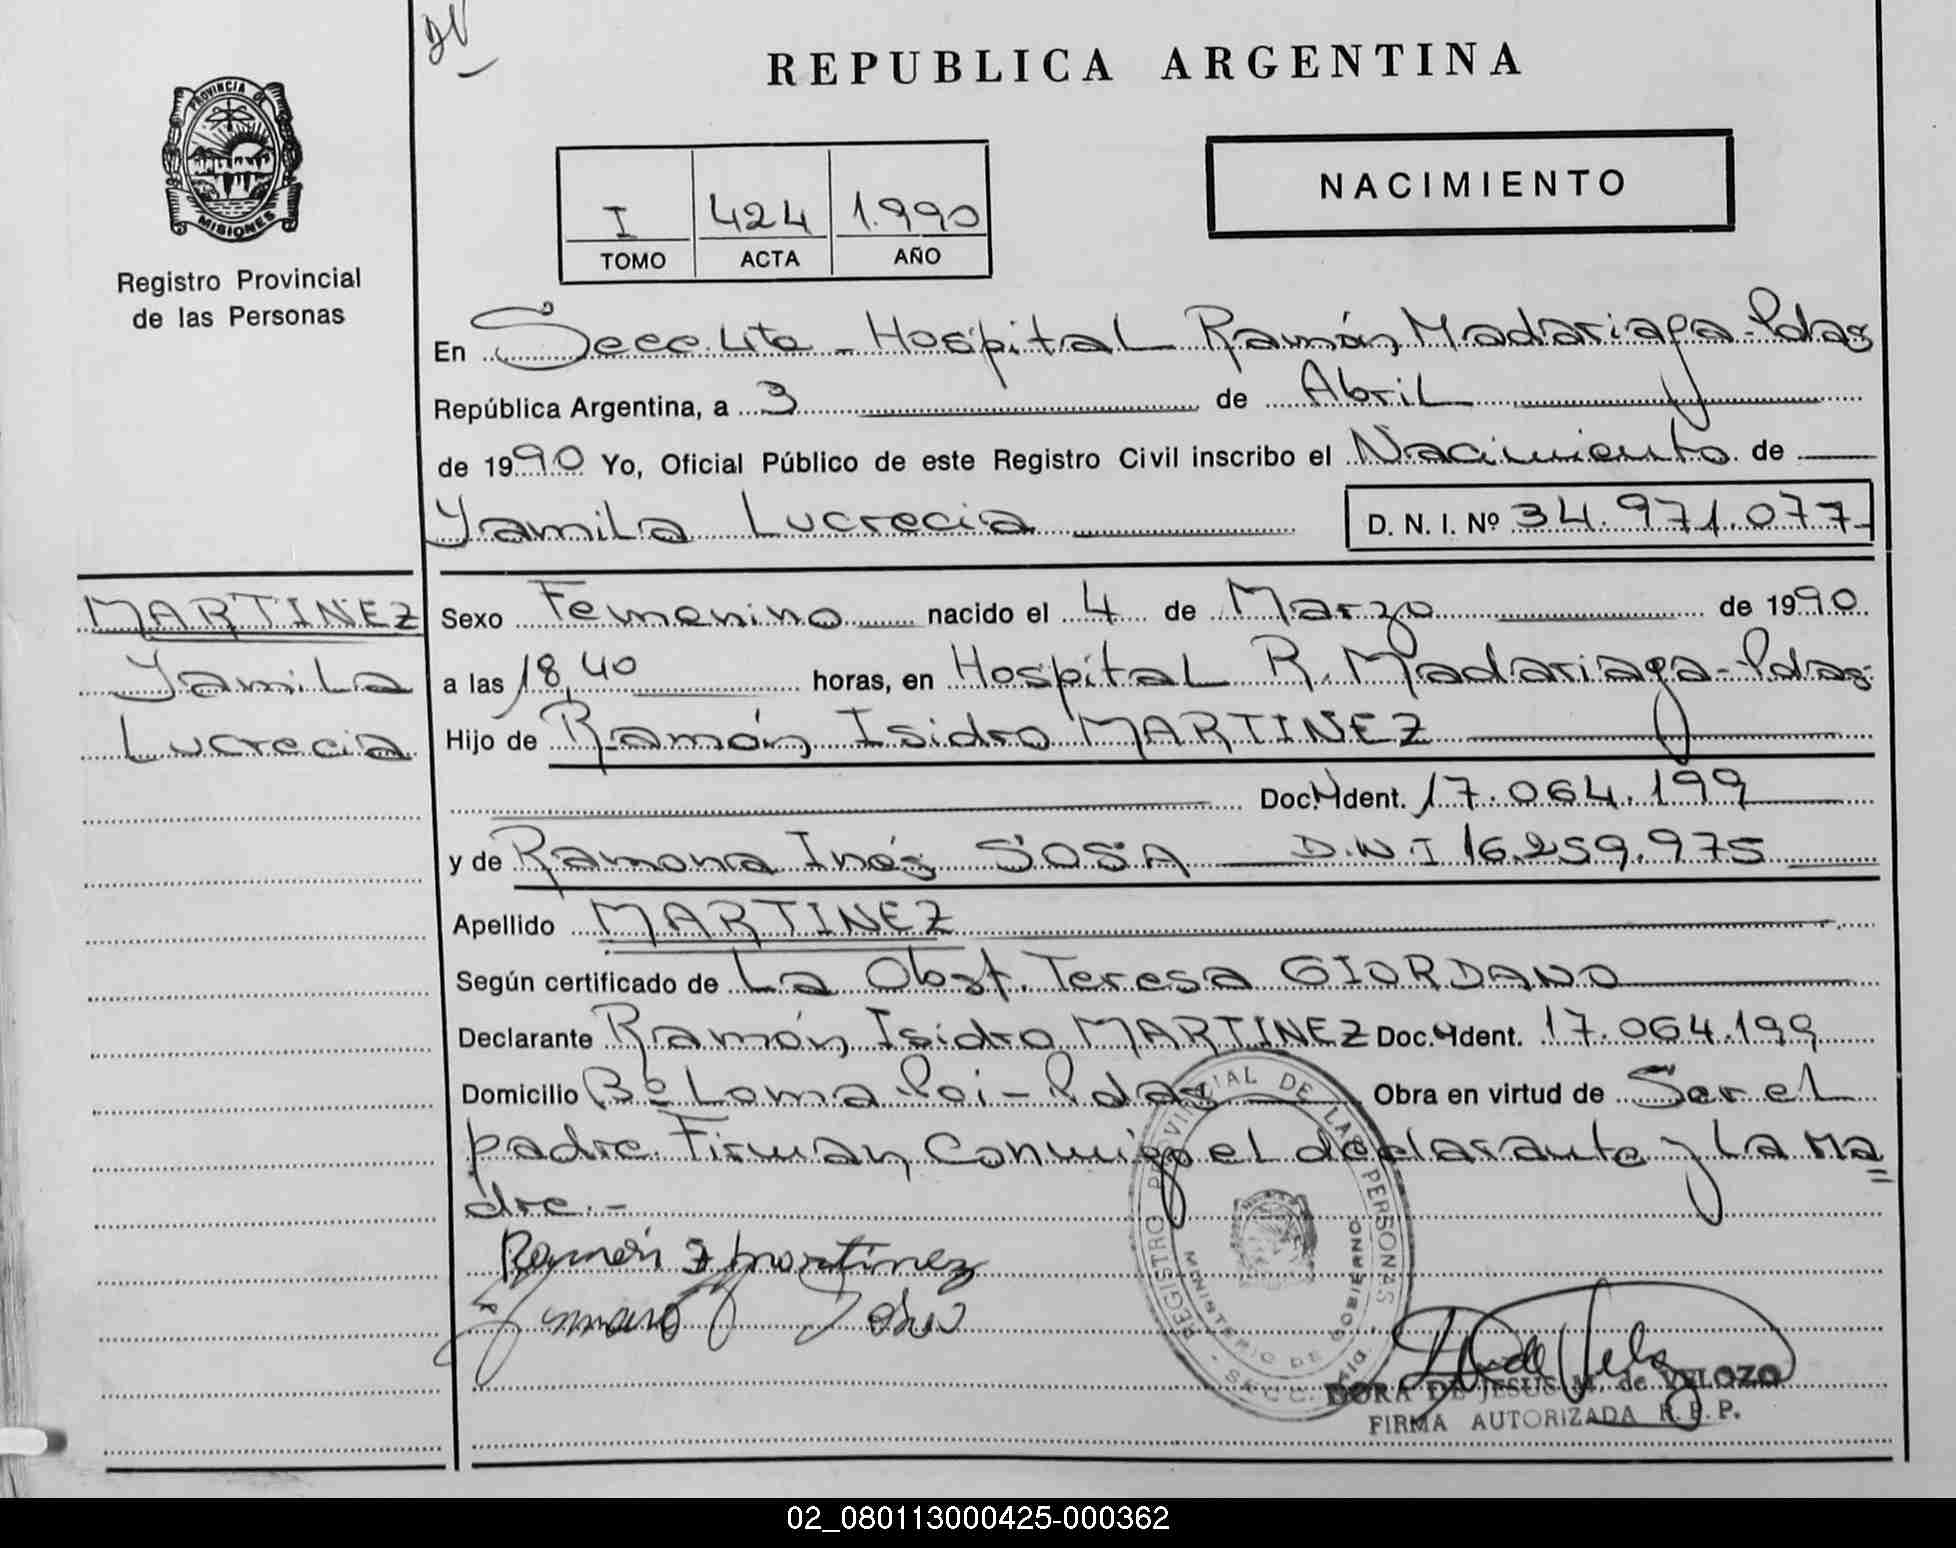 REPUBLICA ARGENTINA
PROVINCIA DE
MISIONES
Registro Provincial
de las Personas
I 424 1.990
TOMO ACTA AÑO
NACIMIENTO
En Secc. 4ta - Hospital Ramón Madariaga - Pdas
República Argentina, a 3 de Abril
de 1990 Yo, Oficial Público de este Registro Civil inscribo el Nacimiento de
Yamila Lucrecia D. N. I. Nº 34.971.077-
MARTINEZ
Yamila
Lucrecia
Sexo Femenino nacido el 4 de Marzo de 1990
a las 18,40 horas, en Hospital R. Madariaga - Pdas
Hijo de Ramón Isidro MARTINEZ
Doc. Ident. 17.064.199
y de Ramona Inés SOSA D.N.I 16.259.975
Apellido MARTINEZ
Según certificado de La Obst. Teresa GIORDANO
Declarante Ramón Isidro MARTINEZ Doc. Ident. 17.064.199
Domicilio Bº Loma Poi - Pdas Obra en virtud de Ser el
padre. Firman conmigo el declarante y la Ma
dre.-
Ramón I martinez
REGISTRO PROVINCIAL DE LAS PERSONAS
MINISTERIO DE GOBIERNO
DORA DE JESUS M. de VELOZO
FIRMA AUTORIZADA R. P. P.
02_080113000425-000362